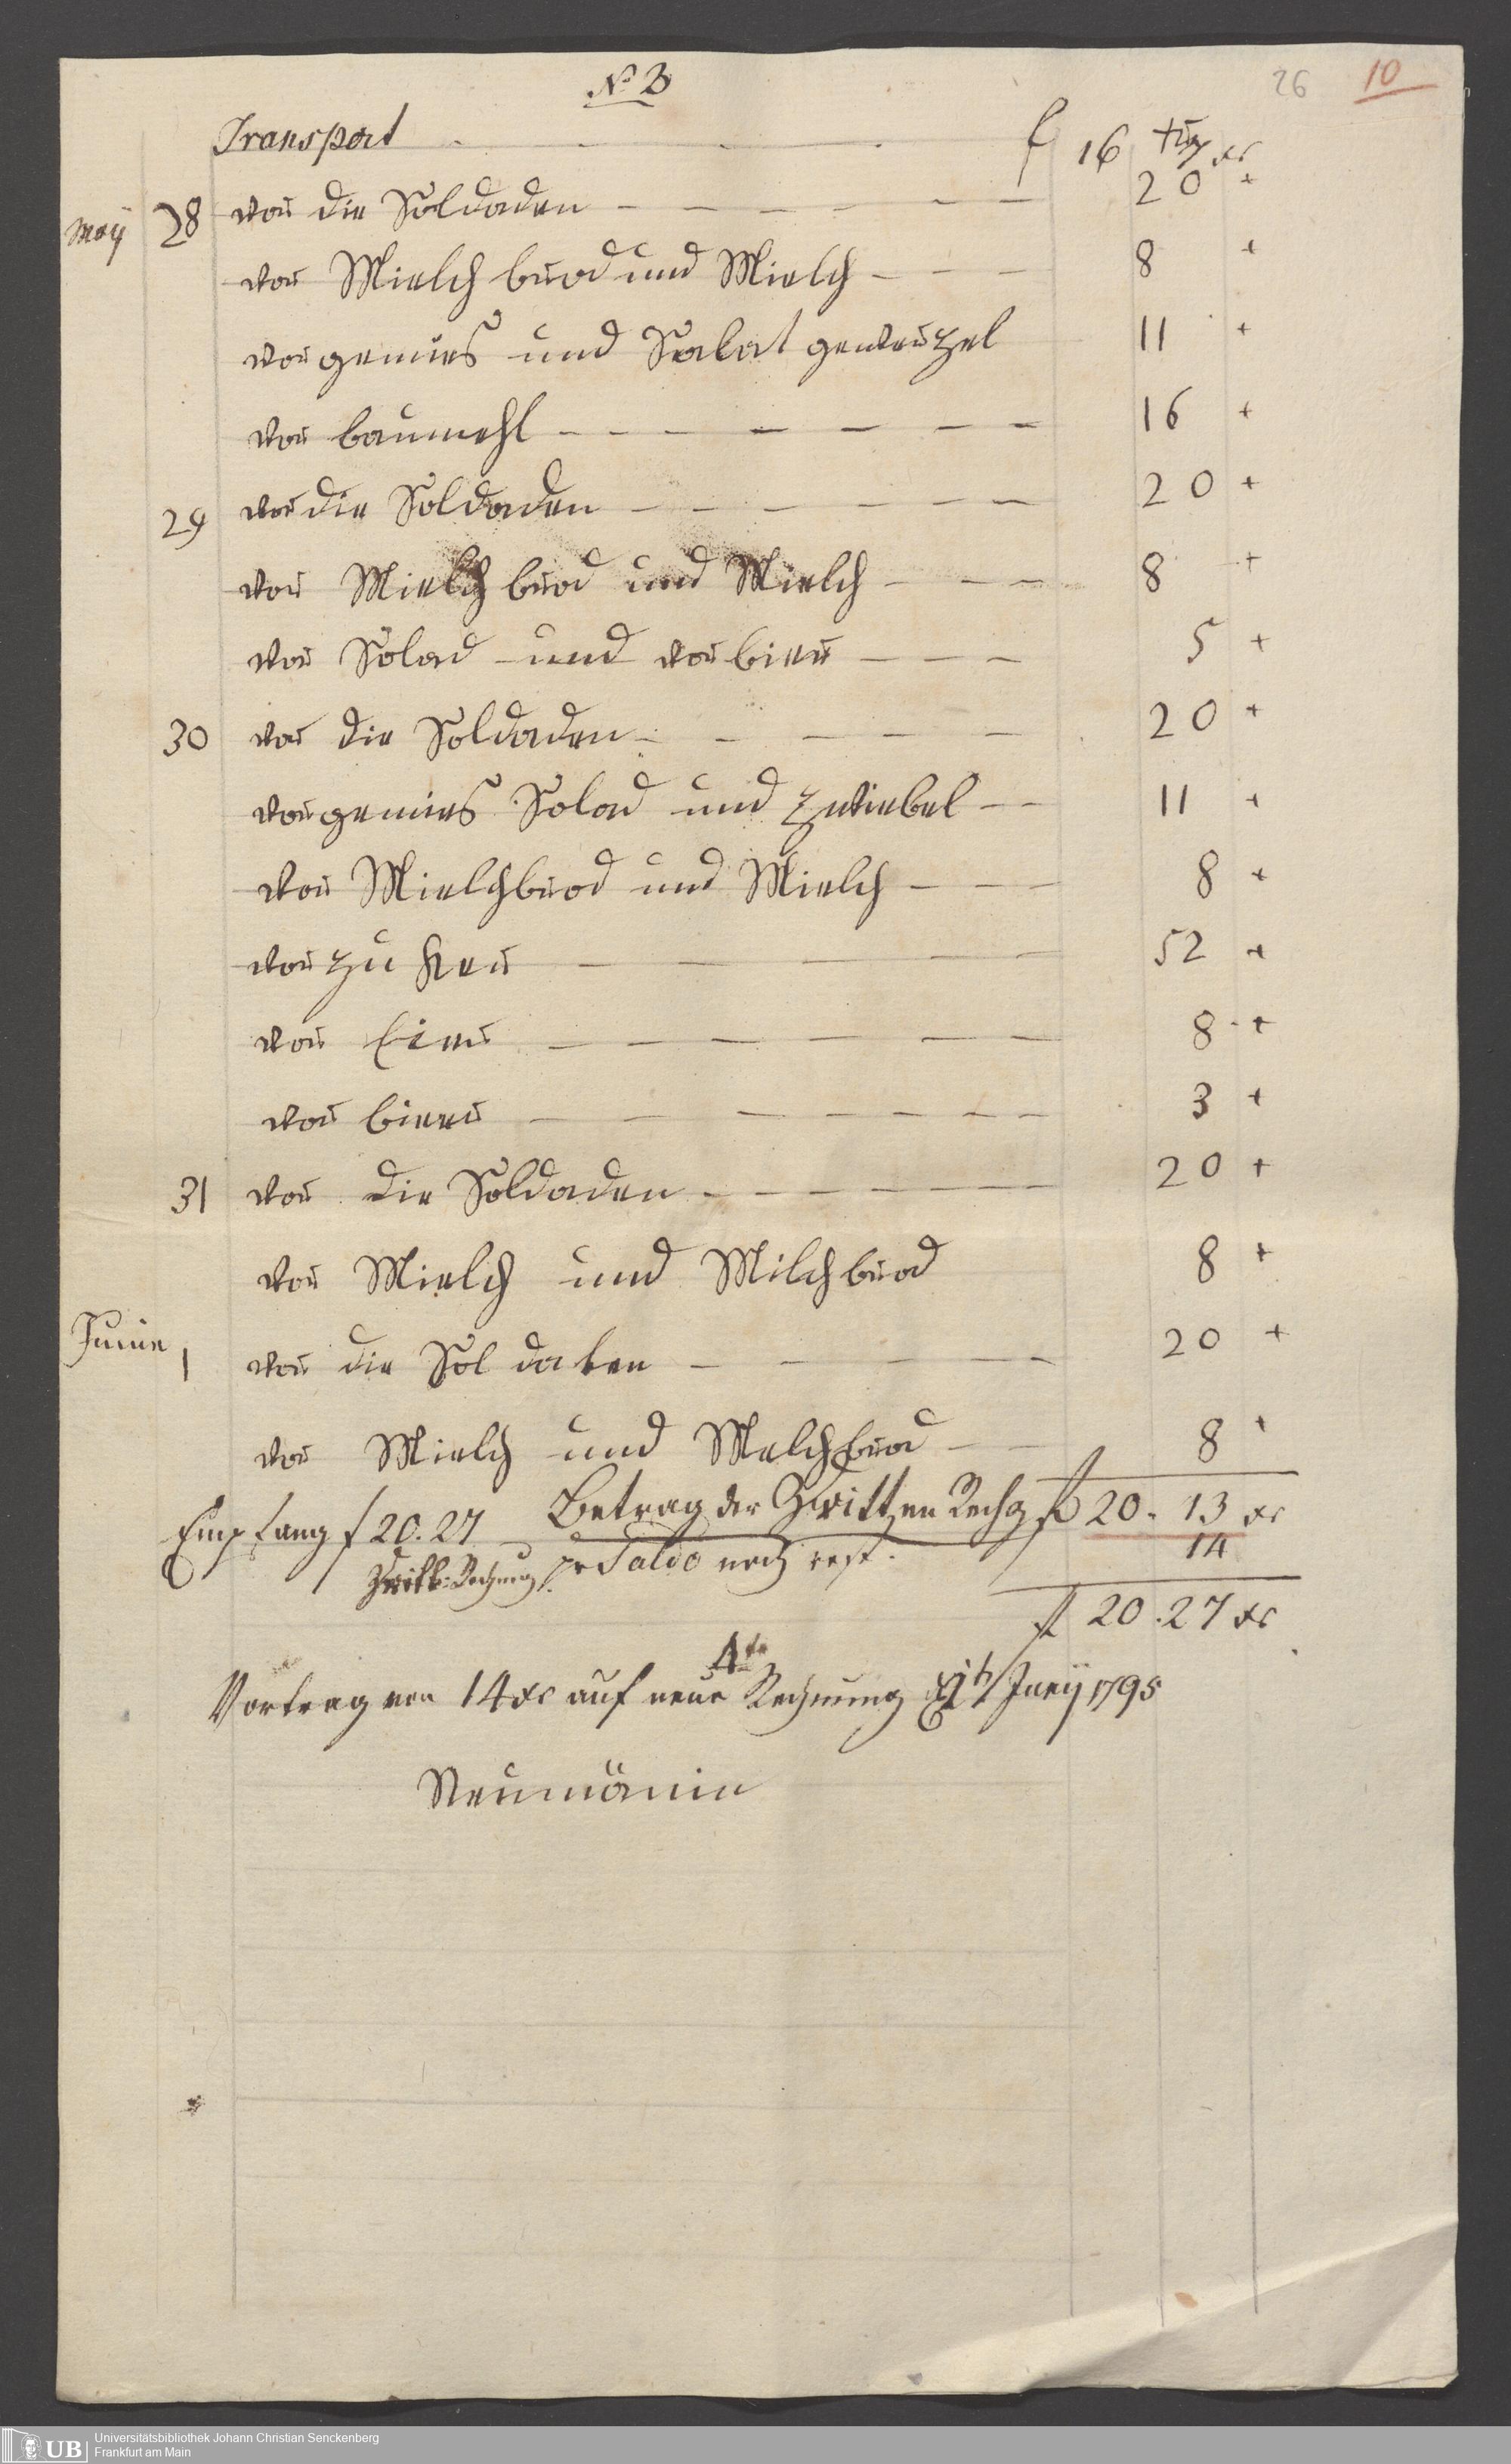 No 3
26 10
Transport f 16 7 xr
Maÿ 28 vor die Soldaden 20 +
vor Mielch brod und Mielch 8 +
vor gemies und Salat 11 +
vor baumehl 16 +
29 vor die Soldaden 20 +
vor Mielch brod und Mielch 8 +
vor Solad und vor bier 5 +
30 vor die Soldaden 20 +
vor gemies Solad und zwiebel 11 +
vor Mielchbrod und Mielch 8 +
vor zu ker 52 +
vor Eier 8 +
vor bier 3 +
31 vor die Soldaden 20 +
vor Mielch und Milchbrod 8 +
Junie 1 vor die Sol daten 20 +
vor Mielch und Melchbrod 8 +
Empfang f 20.27 Betrag der Rechg f 20. 13 xr
Rechnung pr Saldo noch rest. 14
f 20.27 xr
Vortrag von 14 xr auf neue 4te Rechnung Junÿ 1795
Neumänin
UB Universitätsbibliothek Johann Christian Senckenberg
Frankfurt am Main